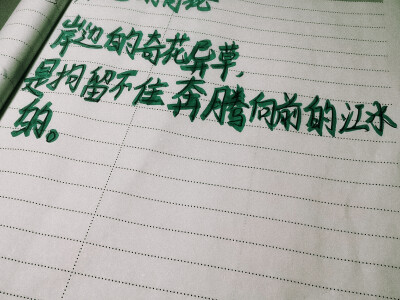 岸边的奇花异草，
是拘留不住奔腾向前的江水
的。